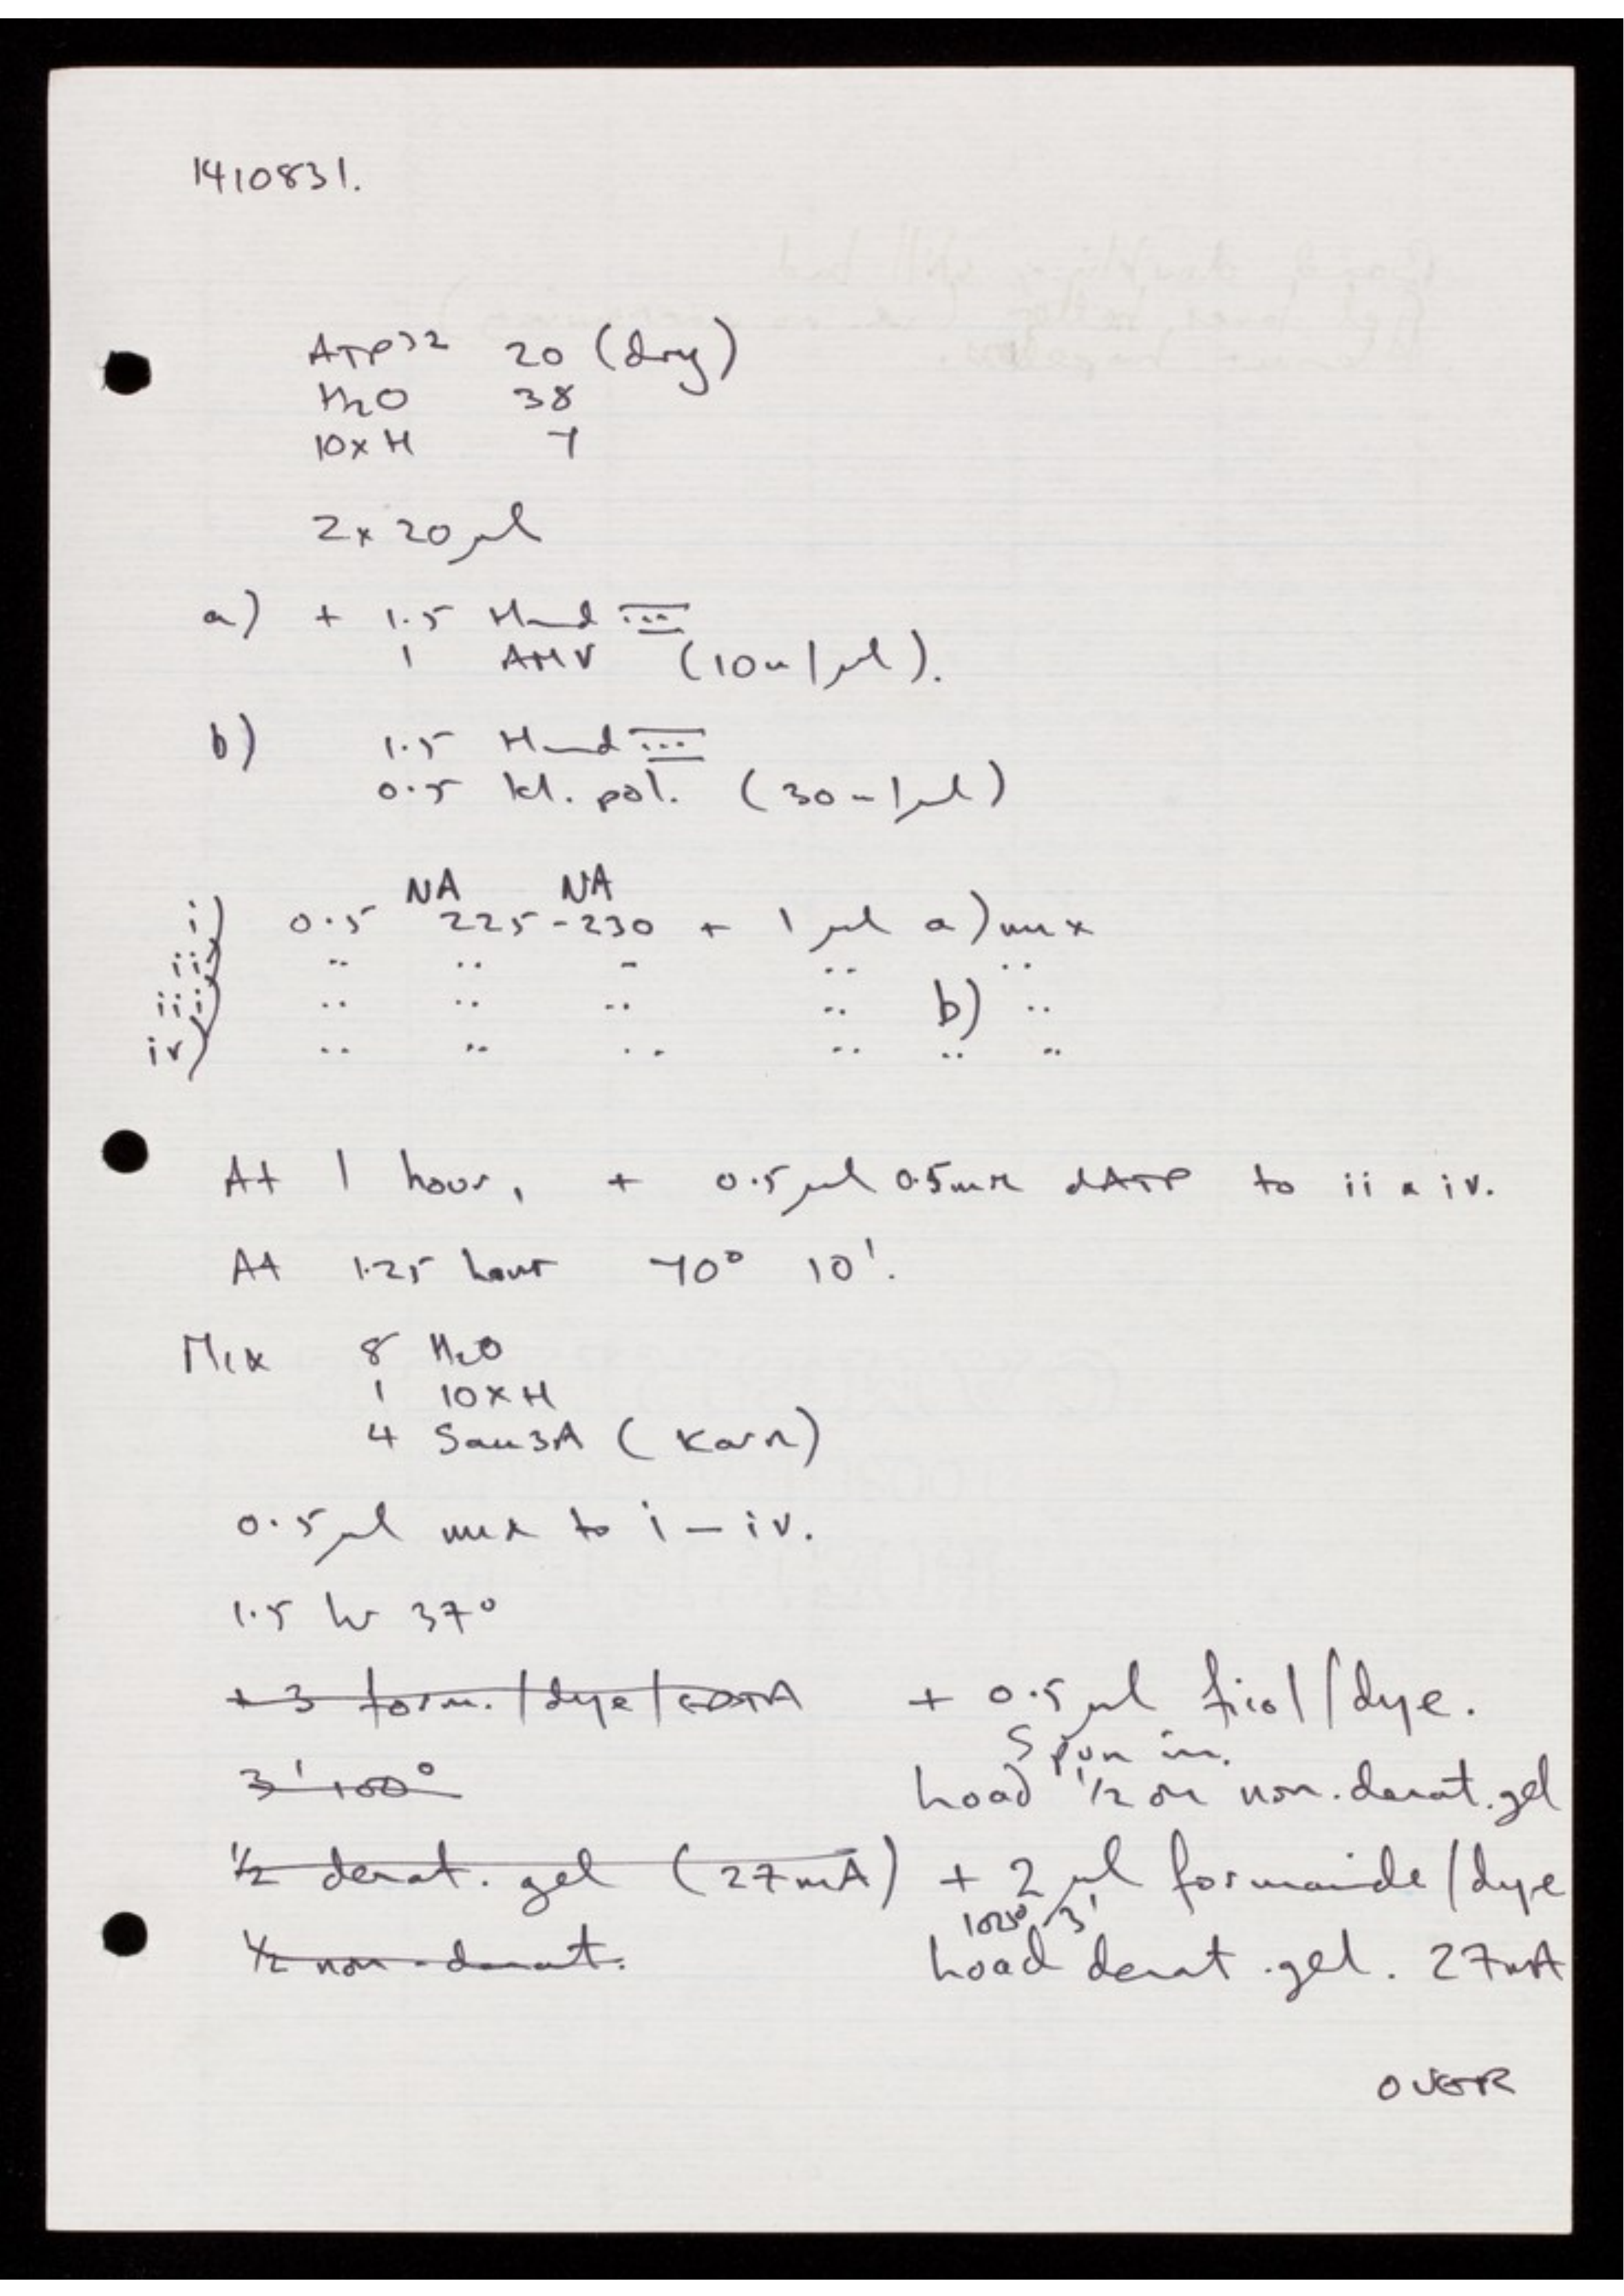 1410831.
ATP32 20 (dry)
H2O 38
10xH 7
2x 20 μl
a) + 1.5 Hind III
1 AMV (10u/μl).
b) 1.5 Hind III
0.5 kl. pol. (30u/μl)
NA NA
i) 0.5 225-230 + 1 μl a) mix
ii) " " " " "
iii) " " " " b) "
iv) " " " " " "
At 1 hour, + 0.5μl 0.5mM dATP to ii & iv.
At 1.25 hour 70° 10'.
Mix 8 H2O
1 10xH
4 Sau3A (Karn)
0.5μl mix to i-iv.
1.5 hr 37°
+3 form./dye/EDTA + 0.5μl ficol/dye.
Spun in.
3' 100° Load 1/2 on non.denat.gel
1/2 denat. gel (27mA) + 2 μl formamide/dye
100° 3'
1/2 non-denat. Load denat.gel. 27mA
OVER